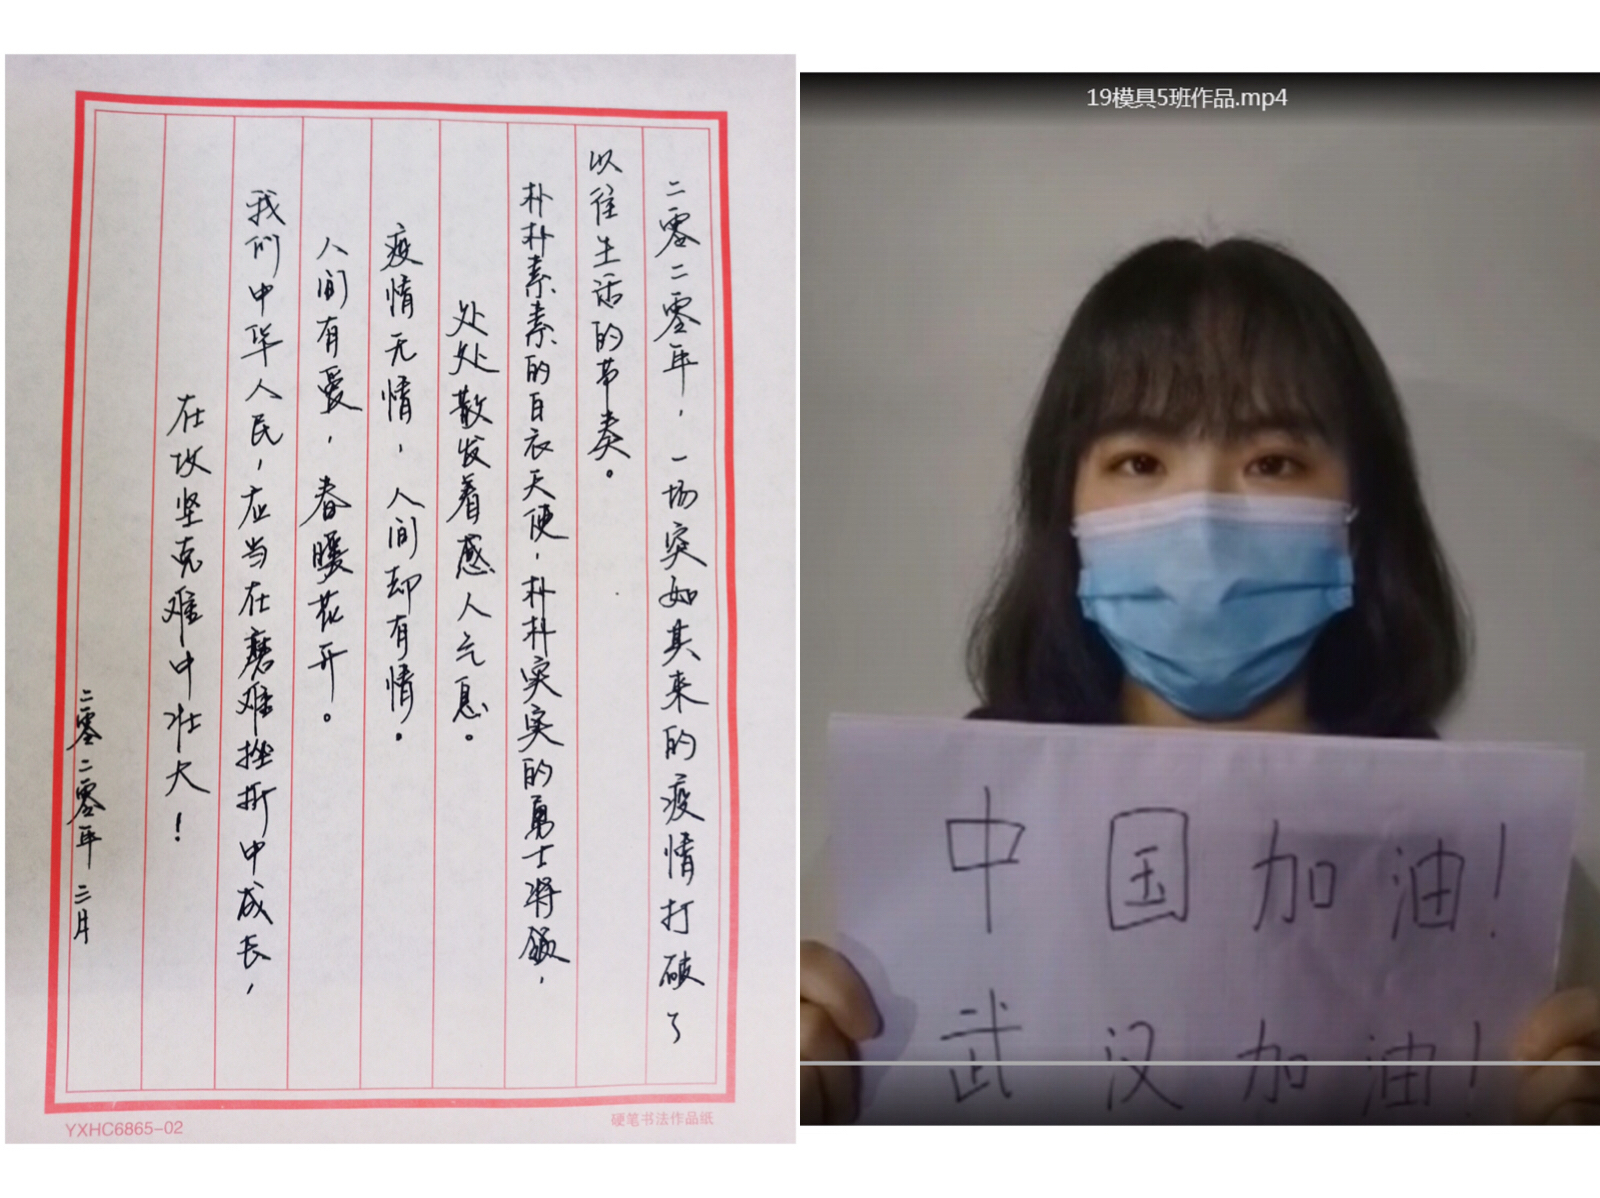 二零二零年，一场突如其来的疫情打破了
以往生活的节奏。
朴朴素素的白衣天使，朴朴实实的勇士将领，
处处散发着感人气息。
疫情无情，人间却有情。
人间有爱，春暖花开。
我们中华人民，应当在磨难挫折中成长，
在攻坚克难中壮大！
二零二零年二月
YXHC6865-02
硬笔书法作品纸
19模具5班作品.mp4
中国加油！
武汉加油！